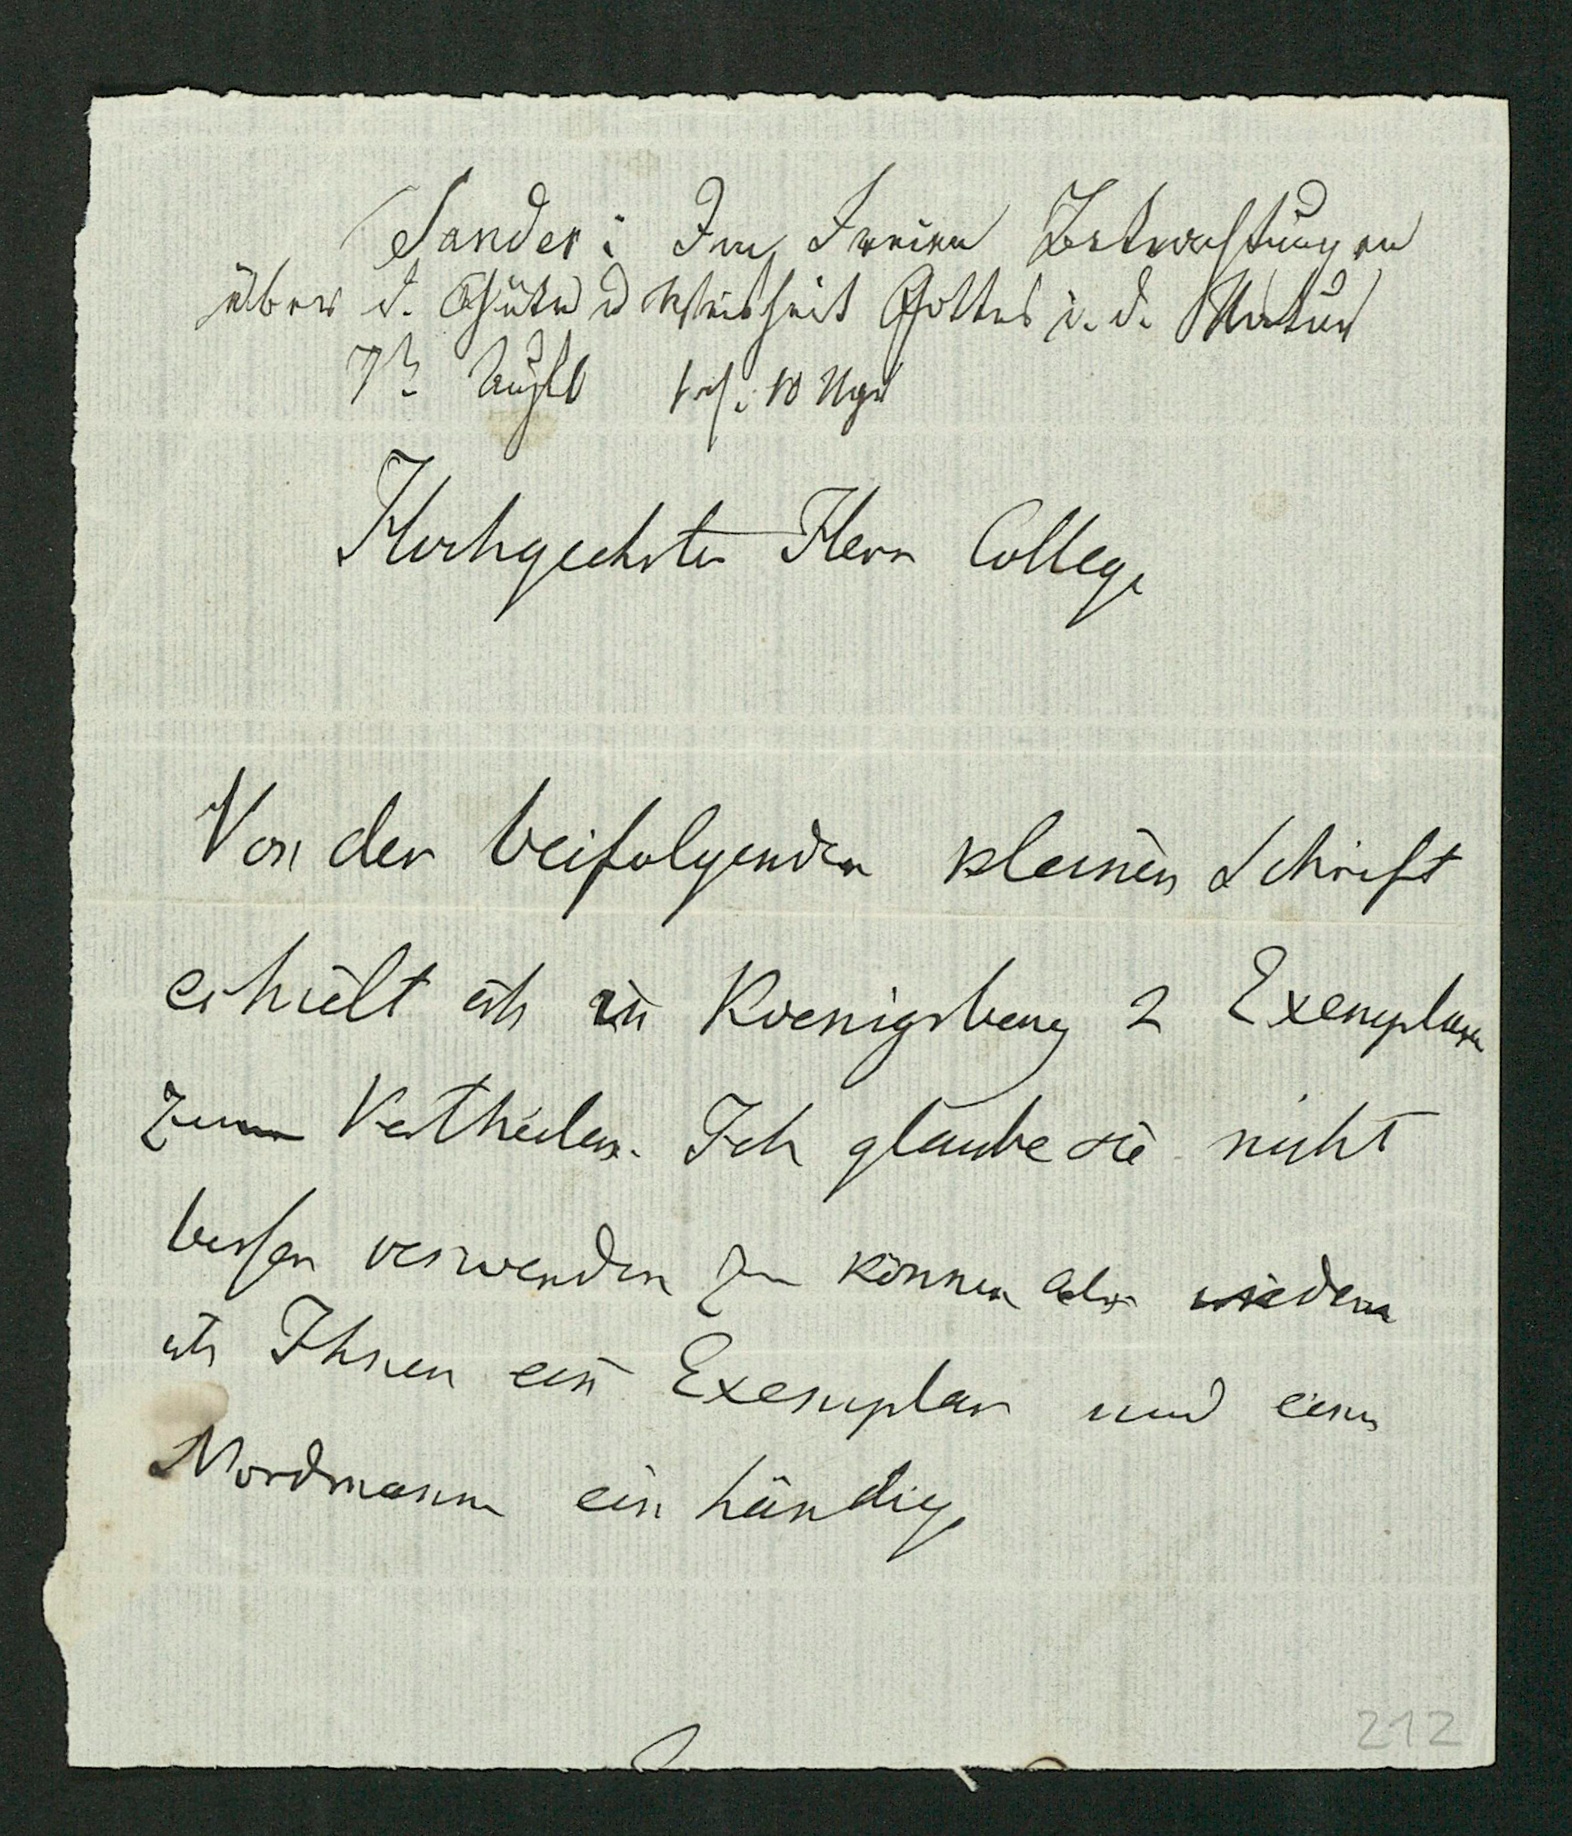 Sander: Im Freien Betrachtungen
über d. Güte u Weisheit Gottes i. d. Natur
7te Aufl 10 Ngr
Hochgeehrter Herr College
Von der beifolgenden kleinen Schrift
erhielt ich in Koenigsberg 2 Exemplare
zum Vertheilen. Ich glaube sie nicht
besser verwenden zu können als indem
ich Ihnen ein Exemplar und eins
Nordmann einhändige
212